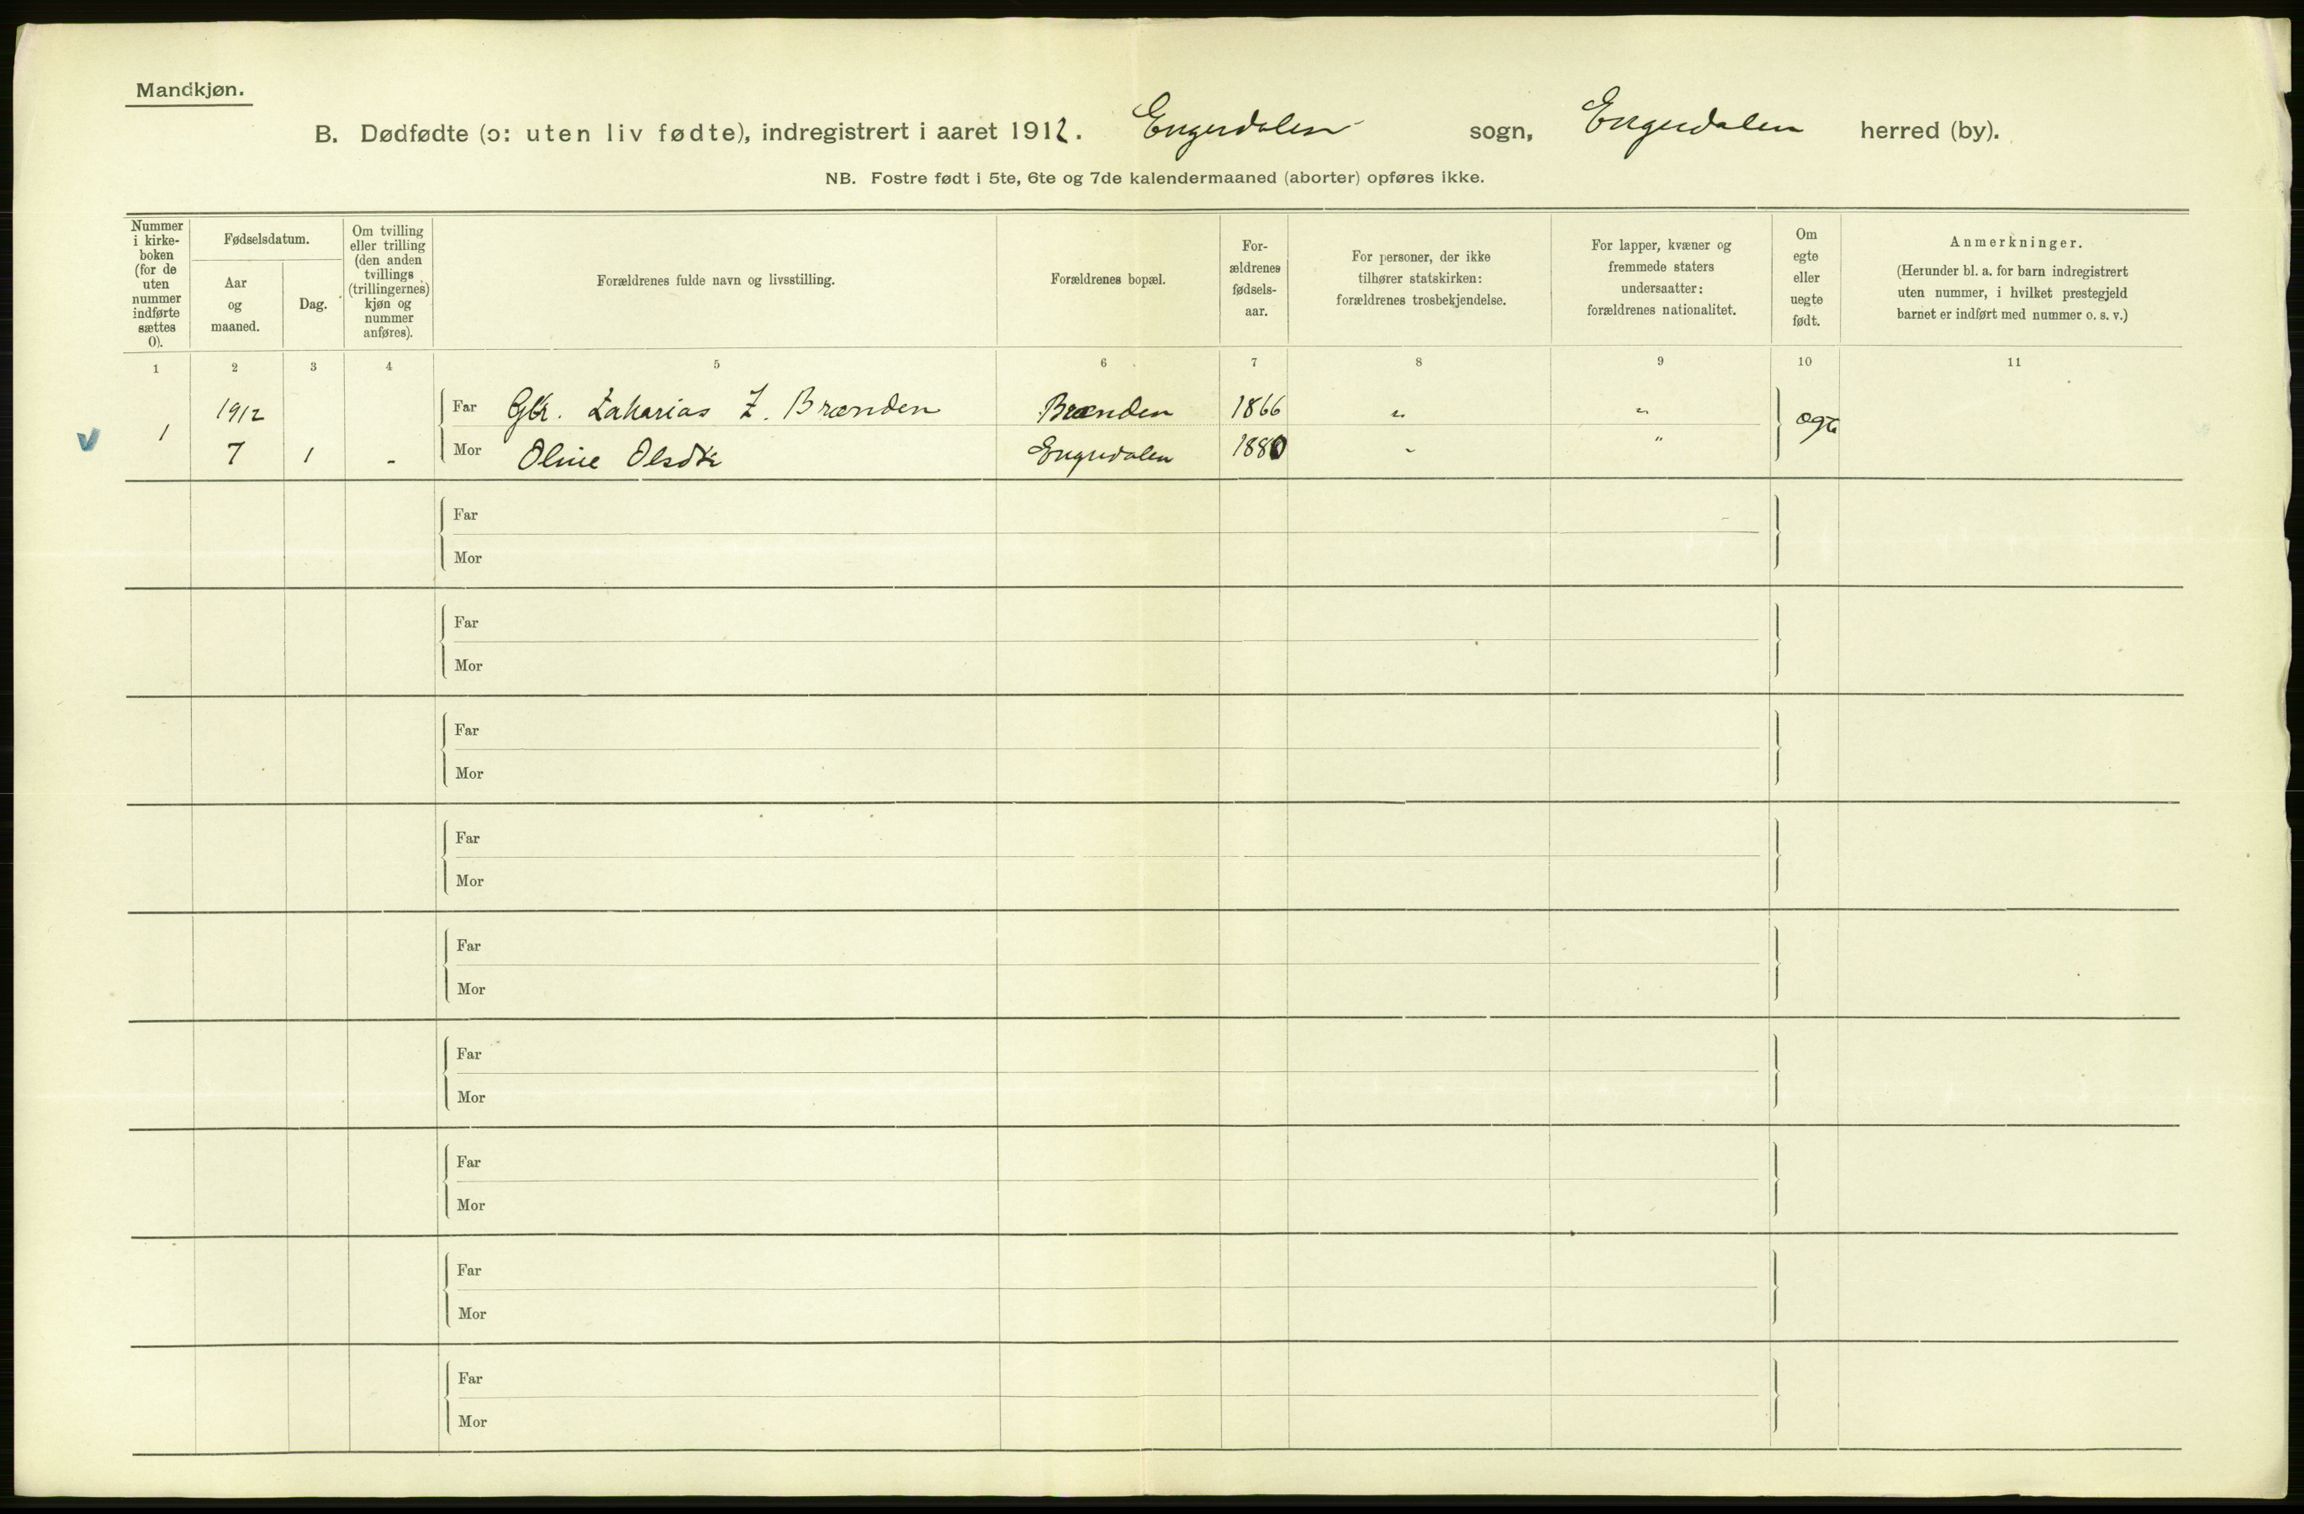 Mandkjøn.
B. Dødfødte (ɔ: uten liv fødte), indregistrert i aaret 1912. Engerdalen sogn, Engerdalen herred (by).
NB. Fostre født i 5te, 6te og 7de kalendermaaned (aborter) opføres ikke.
Nummer
i kirke-
boken
(for de
uten
nummer
indførte
sættes
0).
Fødselsdatum.
Aar
og
maaned.
Dag.
Om tvilling
eller trilling
(den anden
tvillings
(trillingernes)
kjøn og
nummer
anføres).
Forældrenes fulde navn og livsstilling.
Forældrenes bopæl.
For-
ældrenes
fødsels-
aar.
For personer, der ikke
tilhører statskirken:
forældrenes trosbekjendelse.
For lapper, kvæner og
fremmede staters
undersaatter:
forældrenes nationalitet.
Om
egte
eller
uegte
født.
Anmerkninger.
(Herunder bl. a. for barn indregistrert
uten nummer, i hvilket prestegjeld
barnet er indført med nummer o. s. v.)
1 2 3 4 5 6 7 8 9 10 11
1912 Far Gbr. Zakarias Z. Brænden Brænden 1866 " "
v 1 7 1 - Mor Oline Olsdtr Engerdalen 1880 " "
Far
Mor
Far
Mor
Far
Mor
Far
Mor
Far
Mor
Far
Mor
Far
Mor
Far
Mor
Far
Mor